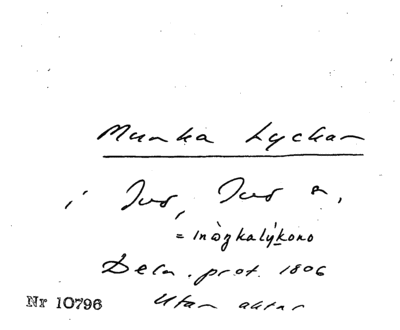 Munka Lyckan
i
= inògkalýkono
Dela. prot. 1806
Nr 10796 Utan aktnr